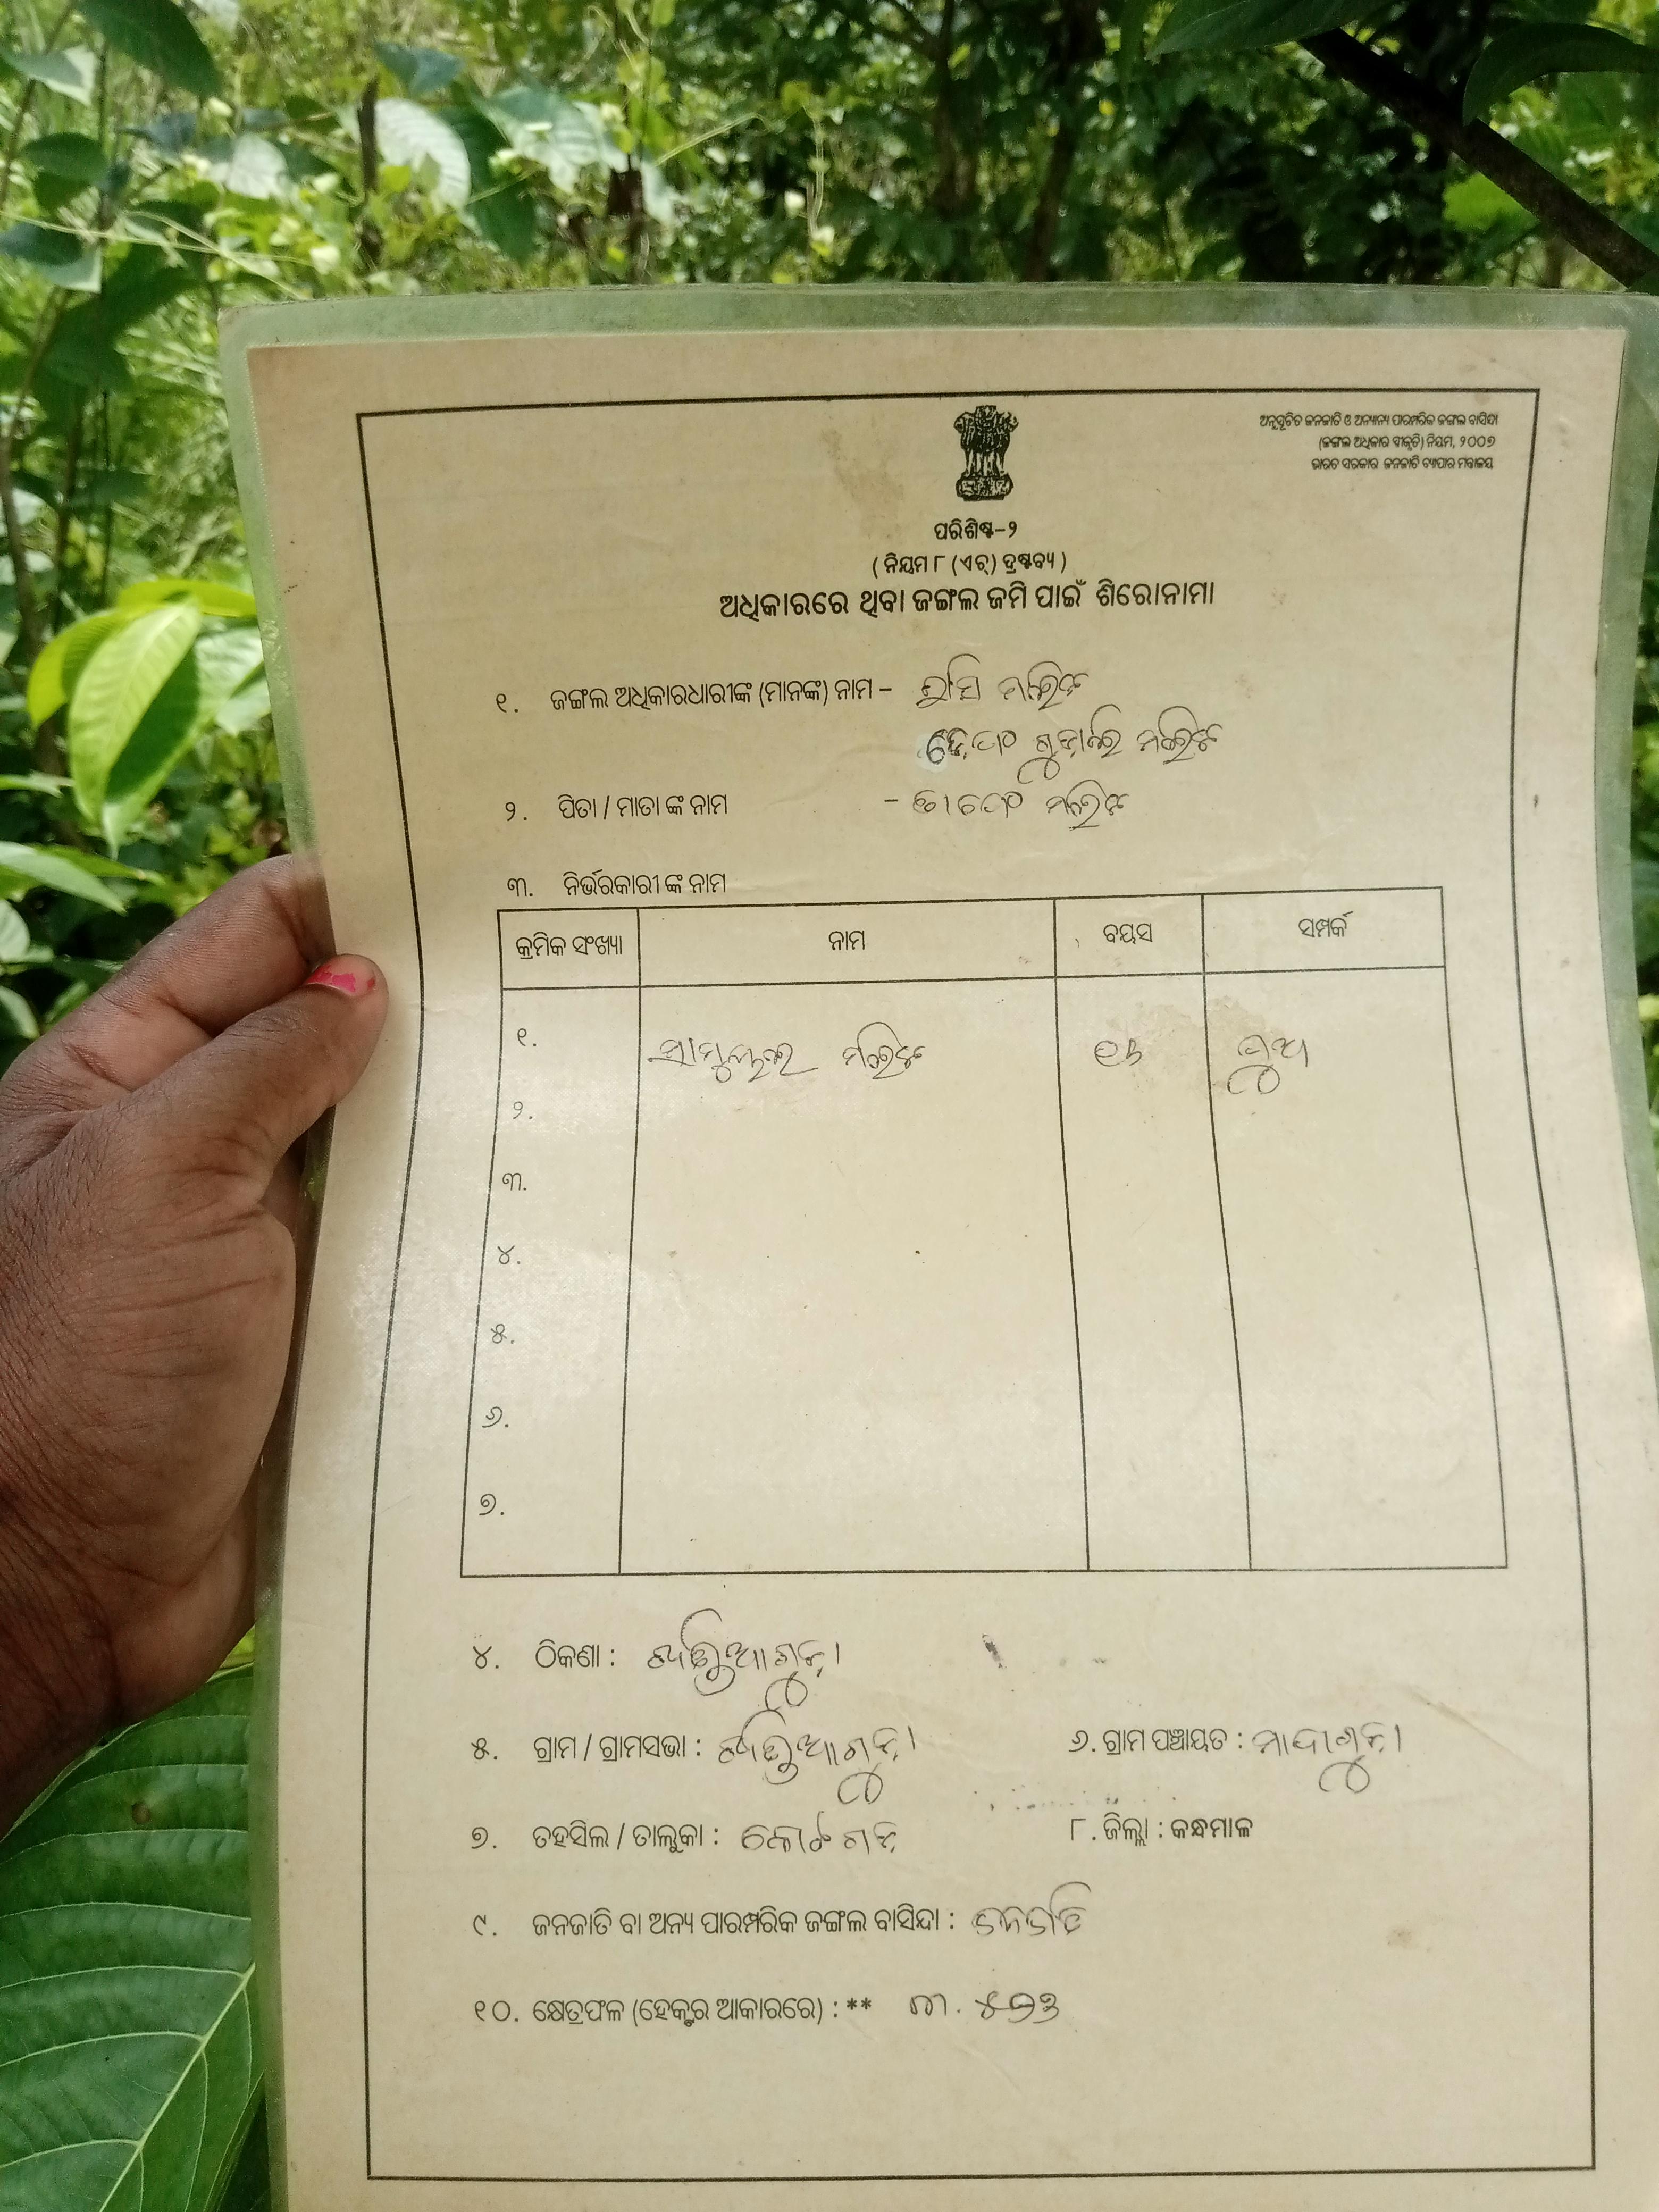 ଅନୁସୂଚିତ ଜନଜାତି ଓ ଅନ୍ୟାନ୍ୟ ପାରମ୍ପରିକ ଜଙ୍ଗଲ ବାସିନ୍ଦା
(ଜଙ୍ଗଲ ଅଧିକାର ସ୍ୱୀକୃତି) ନିୟମ, ୨୦୦୭
ଭାରତ ସରକାର ଜନଜାତି ବ୍ୟାପାର ମନ୍ତ୍ରାଳୟ
ପରିଶିଷ୍ଟ-୨
( ନିୟମ ୮ (ଏଚ୍) ଦ୍ରଷ୍ଟବ୍ୟ )
ଅଧିକାରରେ ଥିବା ଜଙ୍ଗଲ ଜମି ପାଇଁ ଶିରୋନାମା
୧. ଜଙ୍ଗଲ ଅଧିକାରଧାରୀଙ୍କ (ମାନଙ୍କ) ନାମ - ରୁସି ମଲିକ
ମଲିକ
୨. ପିତା / ମାତା ଙ୍କ ନାମ - ମଲିକ
୩. ନିର୍ଭରକାରୀ ଙ୍କ ନାମ
କ୍ରମିକ ସଂଖ୍ୟା ନାମ ବୟସ ସମ୍ପର୍କ
୧. ସାମୁଏଲ ମଲିକ ପୁଅ
୨.
୩.
୪.
୫.
୬.
୭.
୪. ଠିକଣା :
୫. ଗ୍ରାମ / ଗ୍ରାମସଭା : ୬. ଗ୍ରାମ ପଞ୍ଚାୟତ :
୭. ତହସିଲ / ତାଲୁକା : କୋଟଗଡ଼ ୮. ଜିଲ୍ଲା : କନ୍ଧମାଳ
୯. ଜନଜାତି ବା ଅନ୍ୟ ପାରମ୍ପରିକ ଜଙ୍ଗଲ ବାସିନ୍ଦା : ଜନଜାତି
୧୦. କ୍ଷେତ୍ରଫଳ (ହେକ୍ଟର ଆକାରରେ) : **